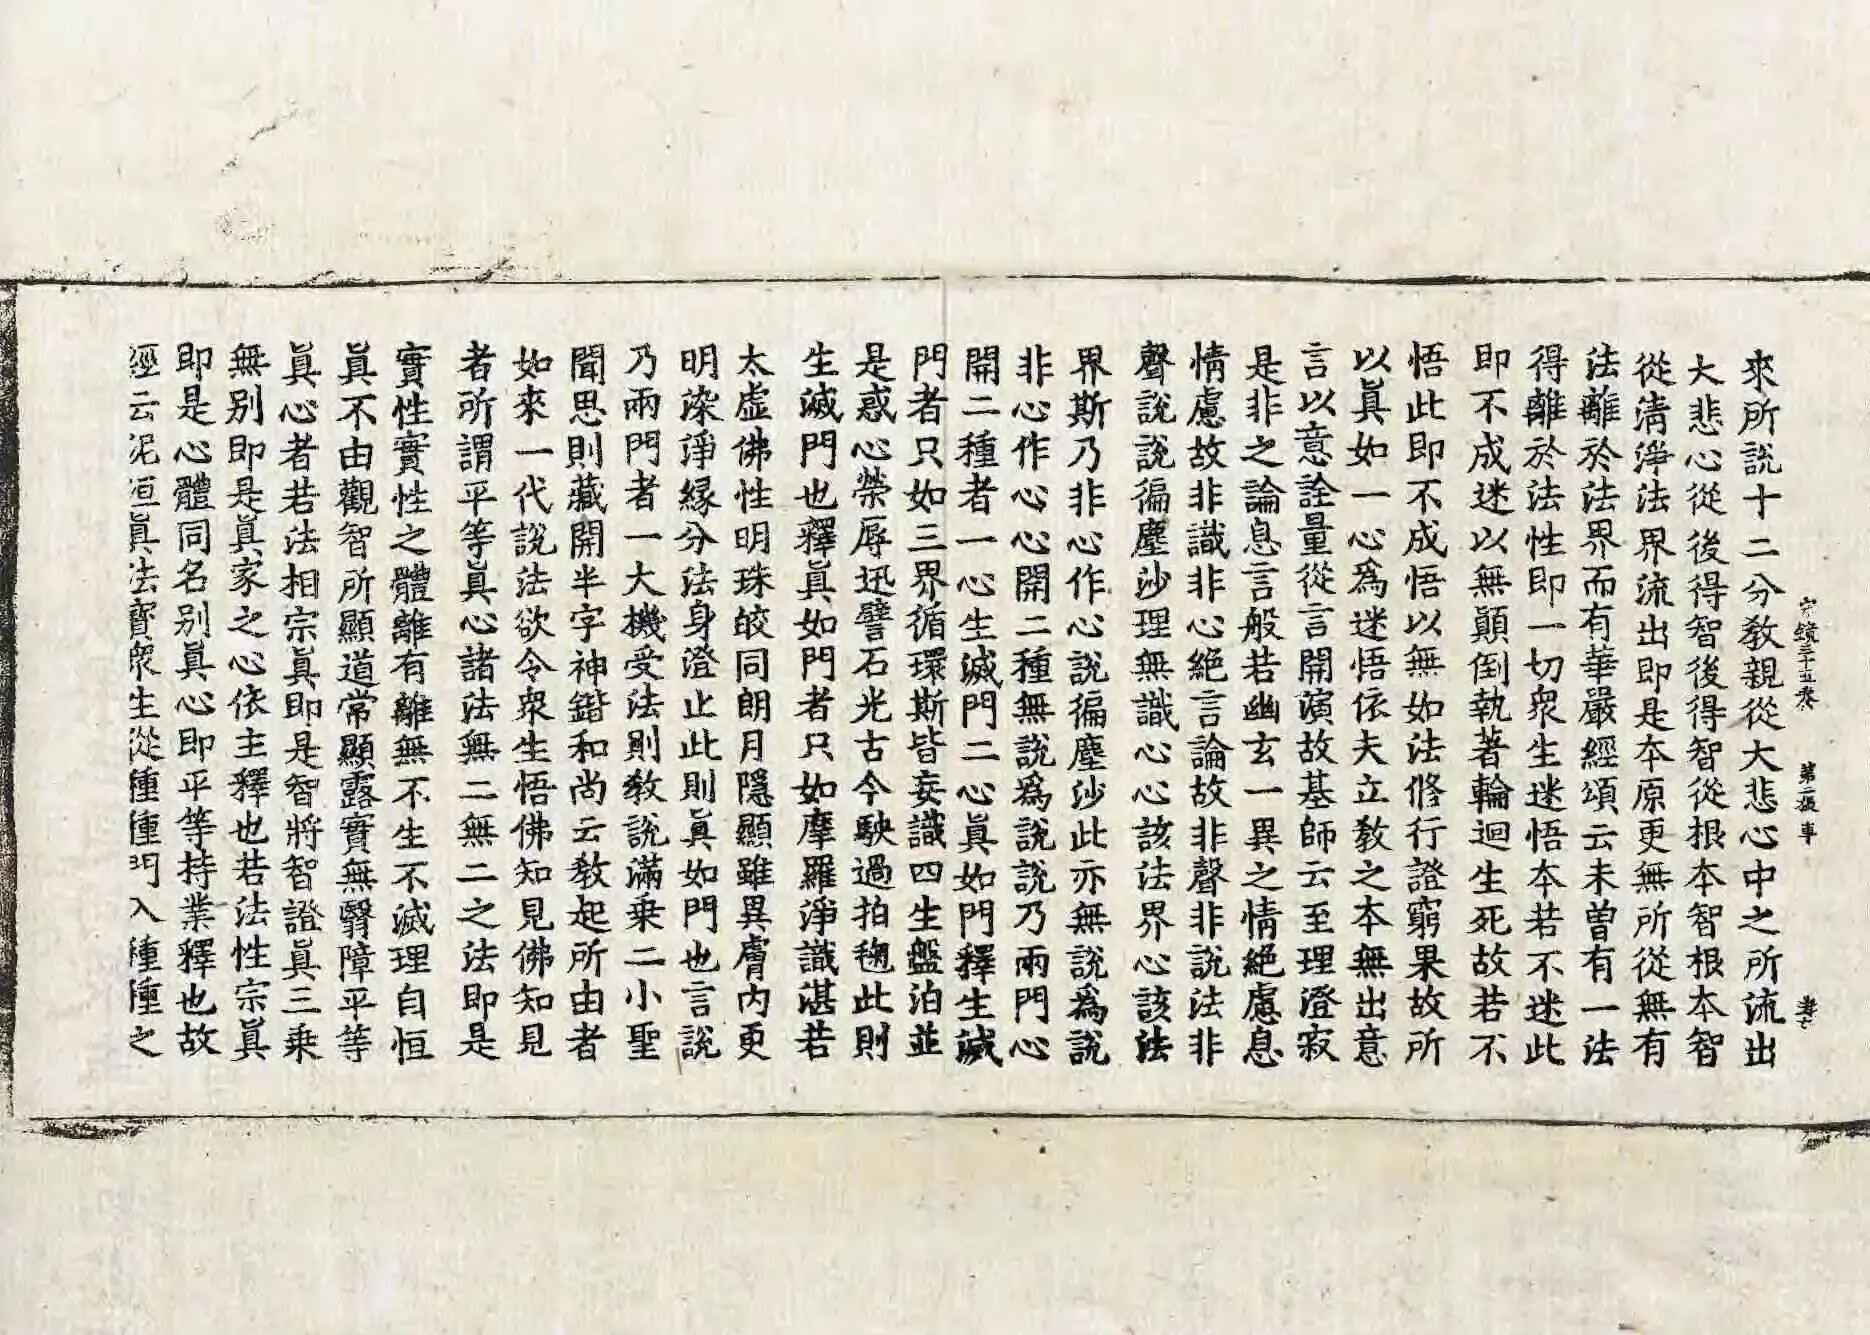 來所說十二分敎親從大悲心中之所流出
宗鏡三十五卷 第二張 車
大悲心從後得智後得智從根本智根本智
從淸淨法界流出即是本原更無所從無有
法離於法界而有華嚴經頌云未曾有一法
得離於法性即一切衆生迷悟本若不迷此
即不成迷以無顚倒執著輪迴生死故若不
悟此即不成悟以無如法修行證窮果故所
以眞如一心爲迷悟依夫立敎之本無出意
言以意詮量從言開演故基師云至理澄寂
是非之論息言般若幽玄一異之情絶慮息
情慮故非識非心絶言論故非聲非說法非
聲說說徧塵沙理無識心心該法界心該法
界斯乃非心作心說徧塵沙此亦無說爲說
非心作心心開二種無說爲說說乃兩門心
開二種者一心生滅門二心眞如門釋生滅
門者只如三界循環斯皆妄識四生盤泊並
是惑心榮辱迅譬石光古今駃過拍毱此則
生滅門也釋眞如門者只如摩羅淨識湛若
太虛佛性明珠皎同朗月隱顯雖異膚內更
明染淨緣分法身澄止此則眞如門也言說
乃兩門者一大機受法則敎說滿乘二小聖
聞思則藏開半字神鍇和尚云敎起所由者
如來一代說法欲令衆生悟佛知見佛知見
者所謂平等眞心諸法無二無二之法即是
實性實性之體離有離無不生不滅理自恒
眞不由觀智所顯道常顯露實無翳障平等
眞心者若法相宗眞即是智將智證眞三乘
無別即是眞家之心依主釋也若法性宗眞
即是心體同名別眞心即平等持業釋也故
經云泥洹眞法寶衆生從種種門入種種之